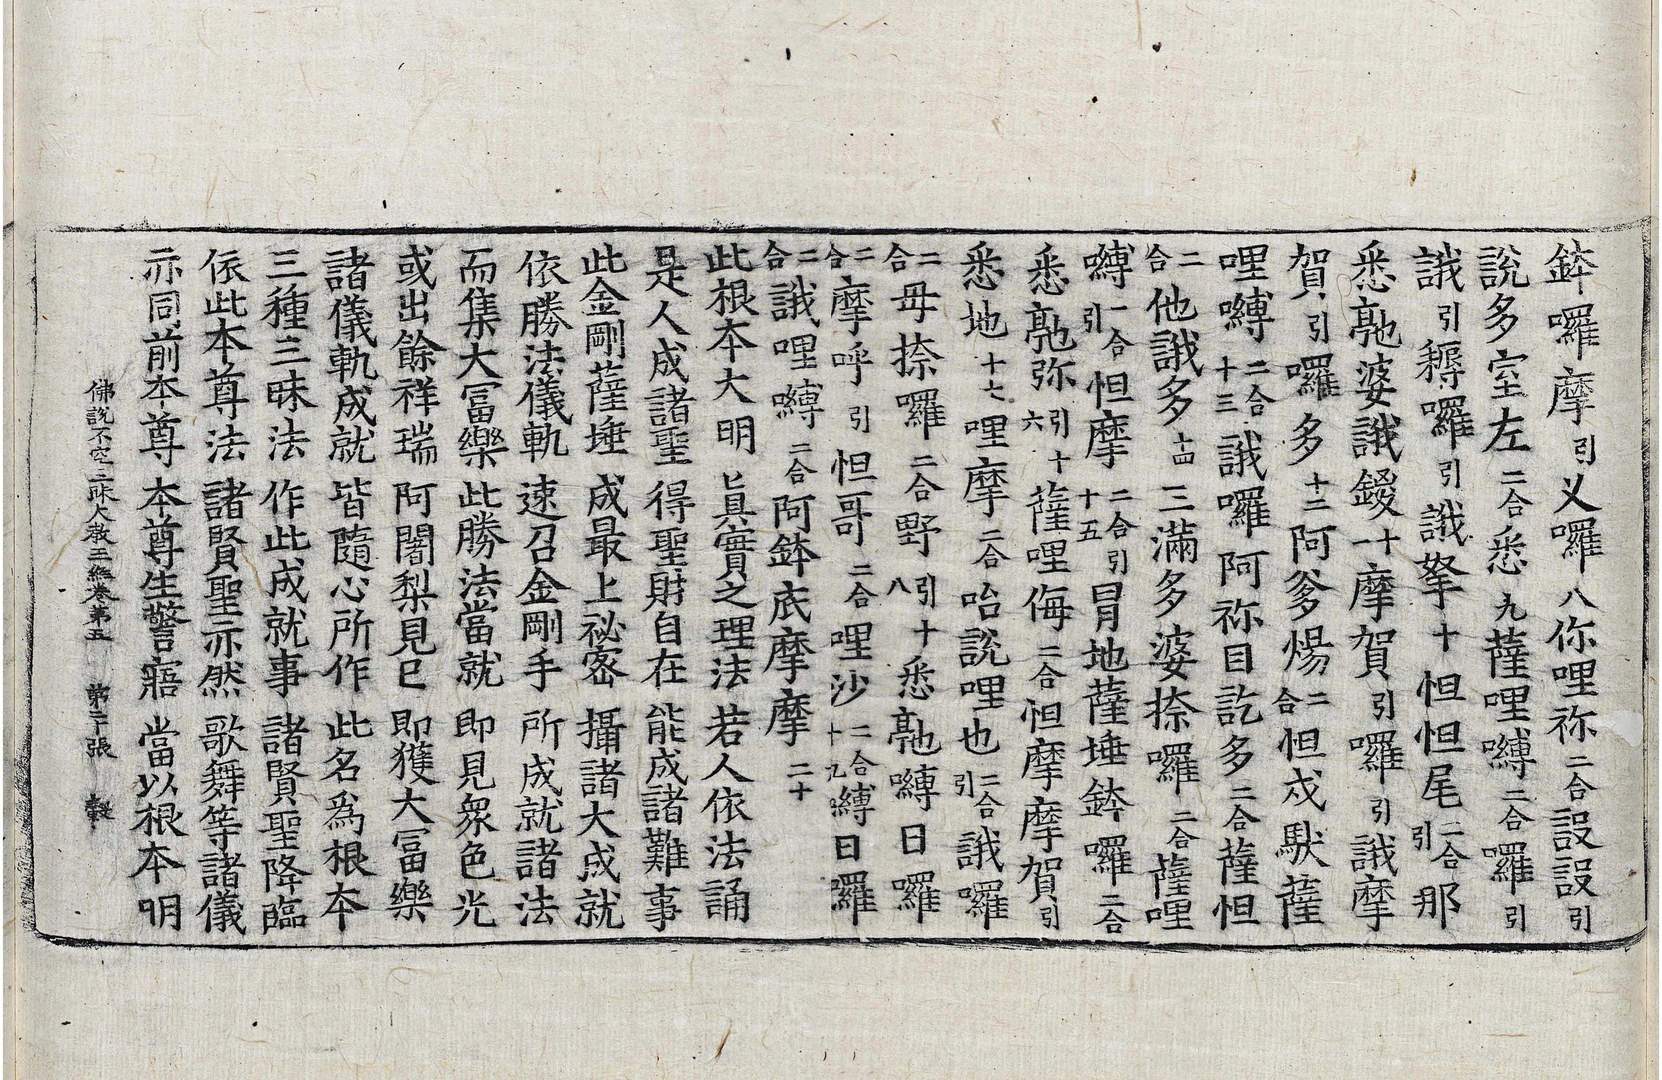 鉢囉摩引乂囉八你哩祢二合設設引
說多室左二合悉九薩哩嚩二合囉引
誐引耨囉引誐拏十怛怛尾二合引那
悉䖙婆誐鍐十一摩賀引囉引誐摩
賀引囉多十二阿爹煬二合怛戍馱薩
哩嚩二合十三誐囉阿祢目訖多二合薩怛
二合他誐多十四三滿多婆捺囉二合薩哩
嚩一合引怛摩二合引十五冐地薩埵鉢囉二合
悉䖙弥引十六薩哩侮二合怛摩摩賀引
悉地十七哩摩二合哈說哩也二合引誐囉
二合毋捺囉二合野引十八悉䖙嚩日囉
二合摩呼引怛哥二合哩沙二合十九嚩日囉
二合誐哩嚩二合阿鉢底摩摩二十
此根本大明 真實之理法 若人依法誦
是人成諸聖 得聖財自在 能成諸難事
此金剛薩埵 成最上祕密 攝諸大成就
依勝法儀軌 速召金剛手 所成就諸法
而集大冨樂 此勝法當就 即見衆色光
或出餘祥瑞 阿闍梨見已 即獲大冨樂
諸儀軌成就 皆隨心所作 此名爲根本
三種三昧法 作此成就事 諸賢聖降臨
依此本尊法 諸賢聖亦然 歌舞等諸儀
亦同前本尊 本尊生警寤 當以根本明
佛說不空三昧大教王經卷第五 第二十張 轂